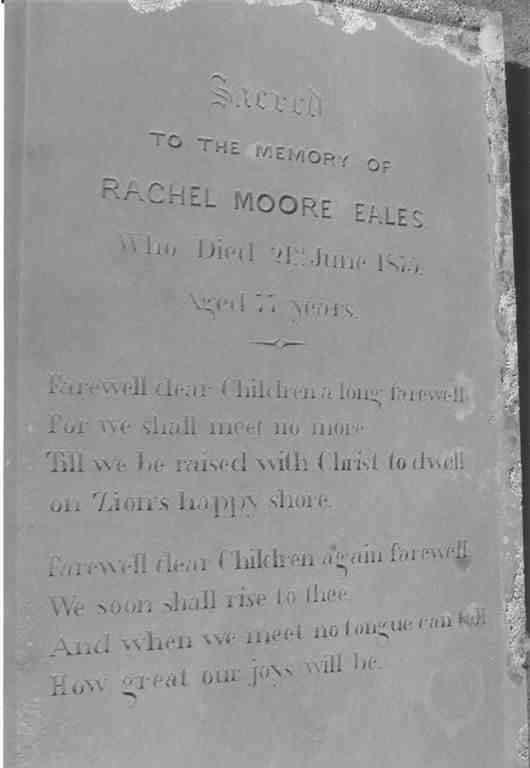 Sacred
TO THE MEMORY OF
RACHEL MOORE EALES
Who Died 21st June 1875.
Aged 77 years.
Farewell dear Children a long farewell
For we shall meet no more
Till we be raised with Christ to dwell
on Zion's happy shore.
Farewell dear Children again farewell
We soon shall rise to thee
And when we meet no tongue can tell
How great our joys will be.